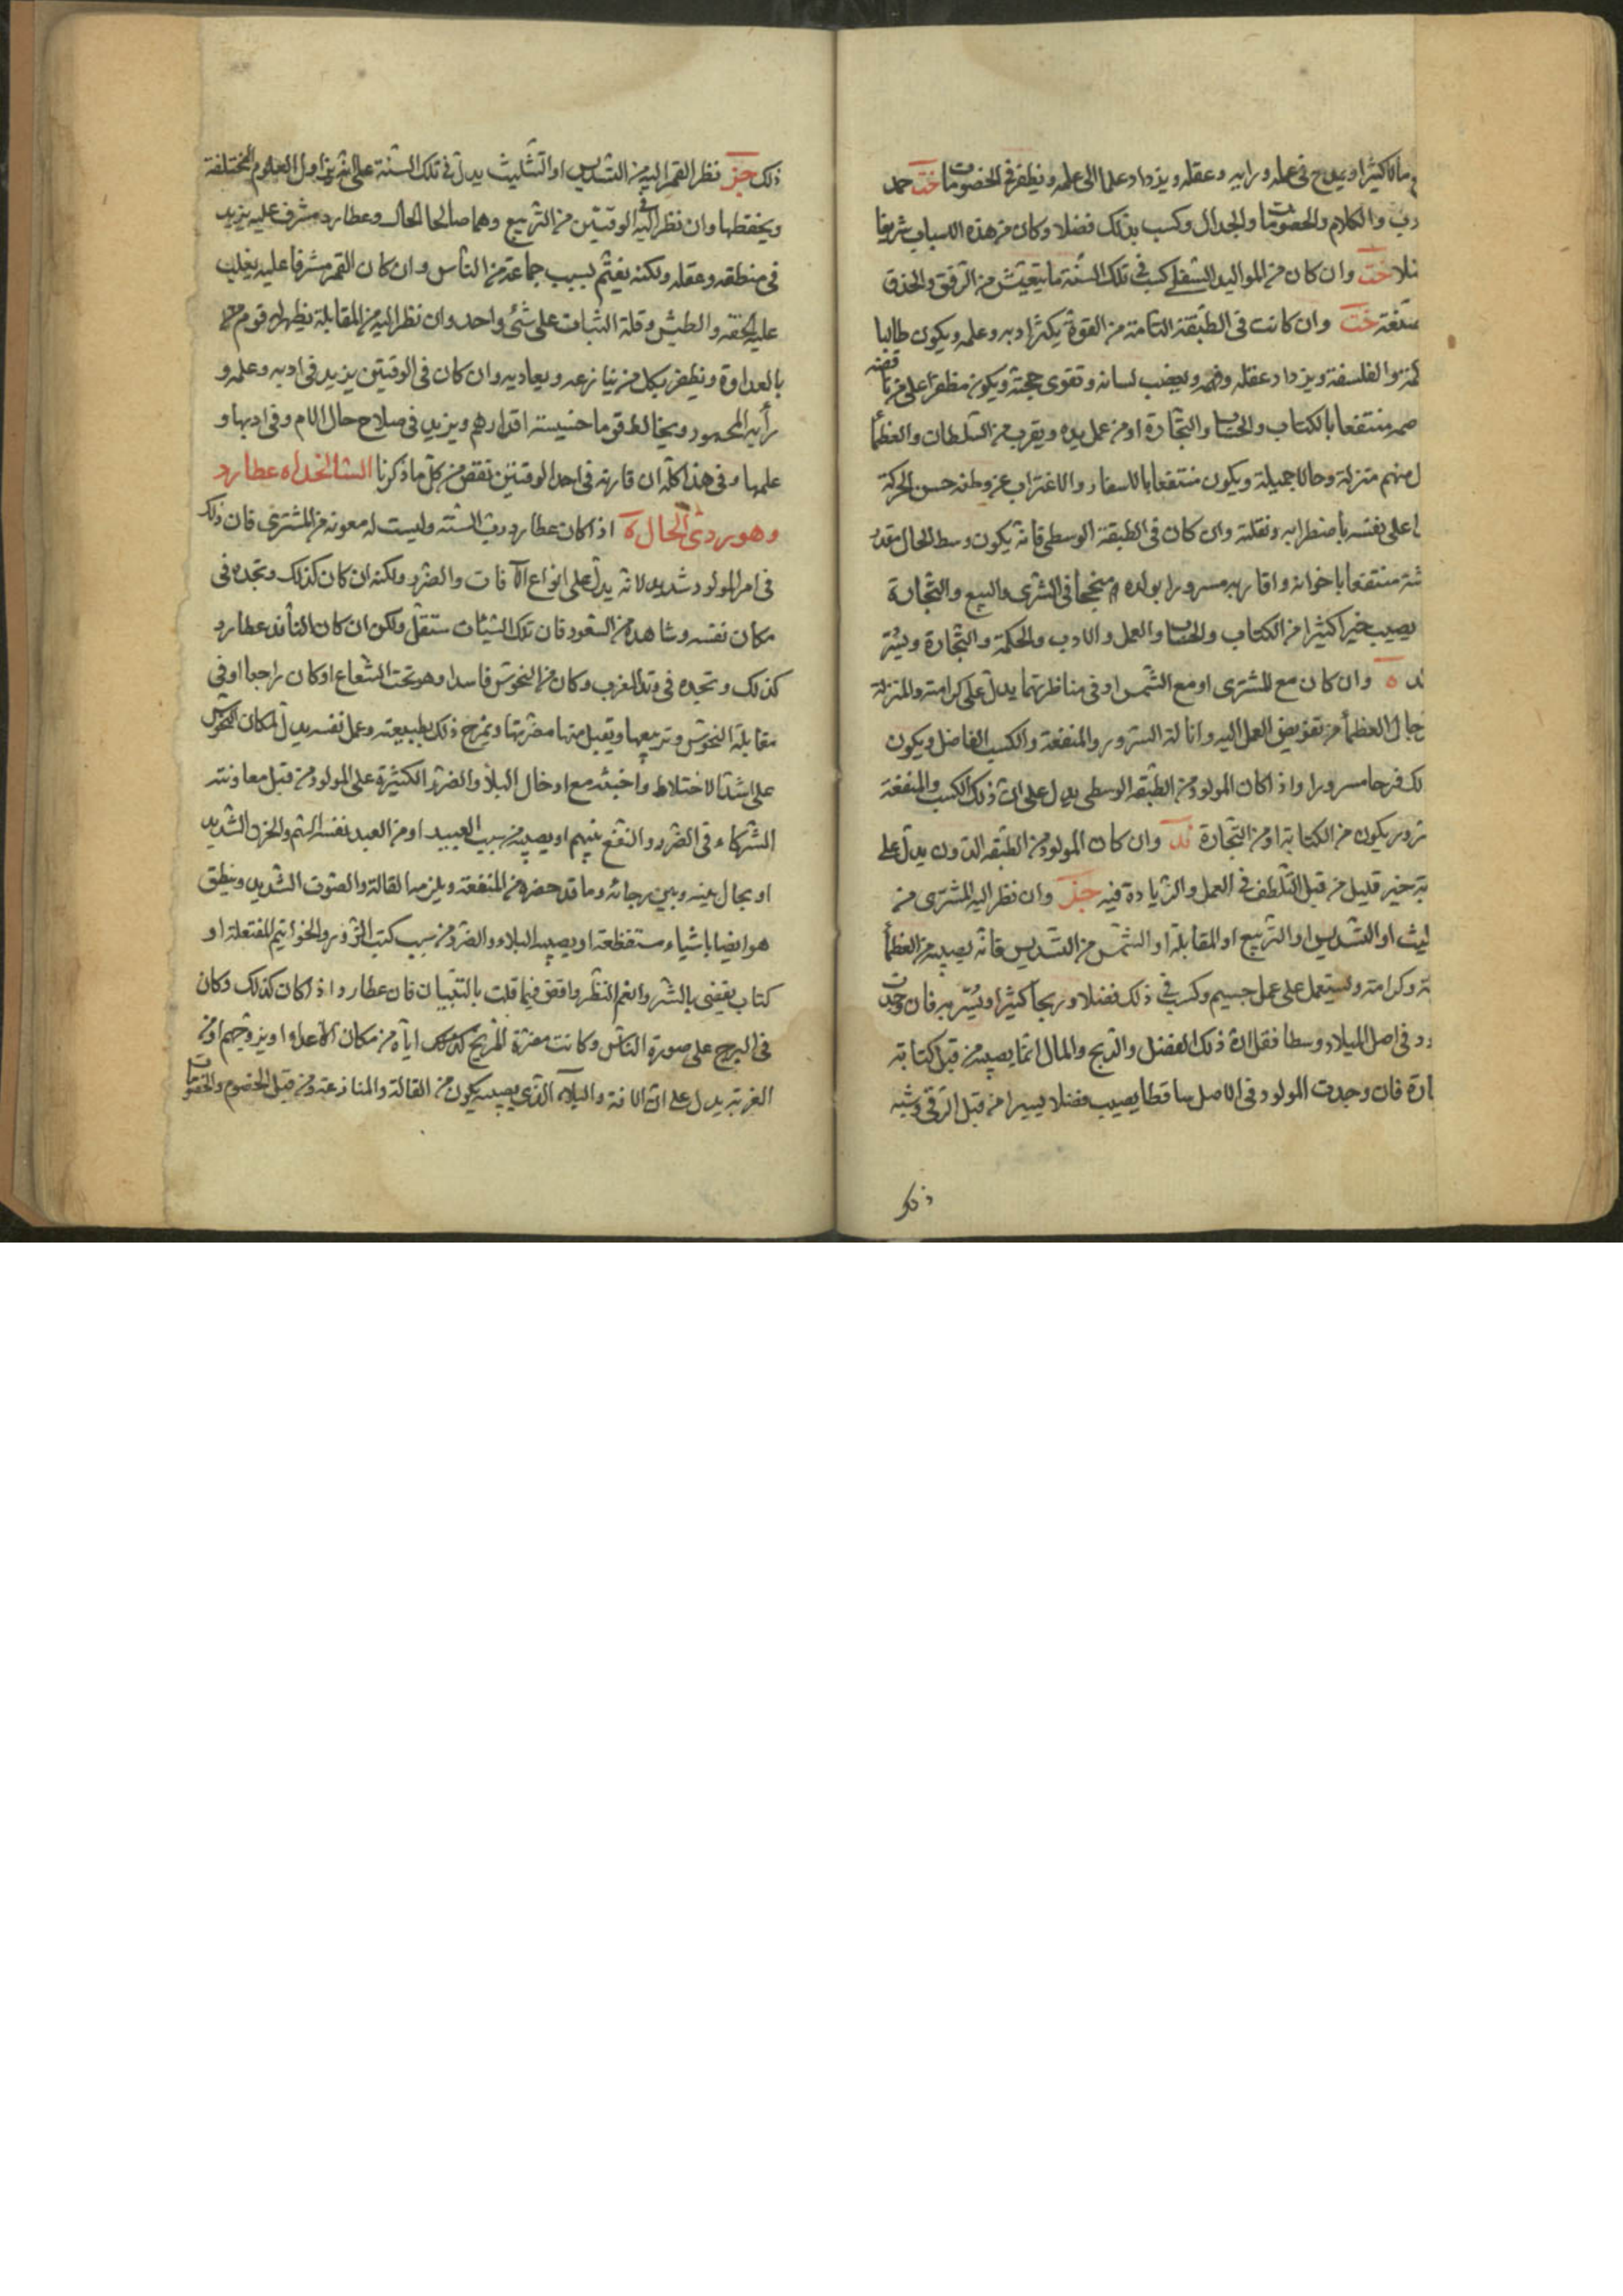 مالا كثيرا ويمدح في علمه ورايه وعقله ويزداد علما الى علمه ويظفر في الخصومات خت حمد
دب والكلام والخصومات والجدال وكسب بذلك فضلا وكان من هذه الاسباب شريفا
خت وان كان من المواليد السفلى كسب في تلك السنة ما يتعيش من الرفق والحذق
خت وان كانت في الطبقة التامة من القوة يكثر ادبه وعلمه ويكون طالبا
والفلسفة ويزداد عقله وفهمه ويعضب لسانه وتقوى حجته ويكون مظفرا على من ناقضه
منتفعا بالكتاب والحساب والتجارة او من عمل يده ويقرب من السلطان والعظمأ
منهم منزلة وحالا جميلة ويكون منتفعا بالاسفار والاغتراب عن وطنه حسن الحركة
على نفسه باضطرابه ونقلته وان كان في الطبقة الوسطى فانه يكون وسط الحال مقدر
منتفعا باخوانه واقاربه مسرورا بولده منجحا في الشرى والبيع والتجارة
يصيب خيرا كثيرا من الكتاب والحساب والعمل والادب والحكمة والتجارة ويسر
وان كان مع المشترى او مع الشمس او في مناظرتهما يدل على كرامته والمنزلة
العظمأ من تفويض العمل اليه وانالة السرور والمنفعة والكسب الفاضل ويكون
لك فرحا مسرورا واذا كان المولود من الطبقه الوسطى يدل على ان ذلك الكسب والمنفعة
يكون من الكتابة او من التجارة وان كان المولود من الطبقه الدون يدل على
خير قليل من قبل التلطف في العمل والزيادة فيه وان نظر اليه المشترى من
ليث او التسديس او التربيع او المقابلة او الشمس من التسديس فانه يصيبه من العظمأ
وكرامة ويستعمل على عمل جسيم وكسب في ذلك فضلا وربحا كثيرا ويسر به فان وجدت
في اصل الميلاد وسطا فقل ان ذلك الفضل والربح والمال انما يصيبه من قبل كتابته
ارة فان وجدت المولود في الاصل ساقطا يصيب فضلا يسيرا من قبل الرقى وشبه
ذلك
ذلك نظر القمر اليه من التسديس او التثليث يدل في تلك السنة على انه يزاول العلوم المختلفة
ويحفظها وان نظر اليه في الوقتين من التربيع وهما صالحا الحال وعطارد مشرف عليه يزيد
في منطقه وعقله ولكنه يغتم بسبب جماعة من الناس وان كان القمر مشرفا عليه يغلب
عليه الخفه والطيش وقلة الثبات على شئ واحد وان نظر اليه من المقابلة يظهر له قوم
بالعداوة ويظفر بكل من ينازعه ويعاديه وان كان في الوقتين يزيد في ادبه وعلمه و
رأيه المحمود ويخالط قوما خسيسة اقدارهم ويزيد في صلاح حال الام وفي ادبها و
علمها وفي هذا كله ان قارنه في احد الوقتين نقص من كل ما ذكرنا الشا لخداه عطارد
وهو ردئ الحال اذا كان عطارد رب السنة وليست له معونة من المشترى فان ذلك
في امر المولود شديد لانه يدل على انواع الآفات والضرر ولكنه ان كان كذلك وتجده في
مكان نفسه وشاهده من السعود فان تلك السيئات ستقل ولكن ان كان النافد عطارد
كذلك وتجده في وتد المغرب وكان من النحوس فاسدا وهو تحت الشعاع او كان راجعا او في
مقابلة النحوس وتربيعها ويقبل منها مضرتها ويمزج ذلك بطبيعته وعمل نفسه يدل لمكان النحوس
على اشد الاختلاط واخبثه مع ادخال البلأ والضرر الكثيرة على المولود من قبل معاونته
الشركاء في الضرر والنفع بينهم او يصيبه من سبب العبيد او من العبد نفسه الشم والحزن الشديد
او يحال بينه وبين رجائه وما قد حضره من المنفعة ويلزمه القالة والصوت الشديد وينطق
هو ايضا باشياء مستفظعة او يصيبه البلاء والضرر من سبب كتب الزور والخواتيم المفتعلة او
كتاب يقضى بالشر وانعم النظر واقض فيما قلت بالتبيان فان عطارد اذا كان كذلك وكان
في البرج على صورة الناس وكانت مضرة المريخ اياه من مكان الاعداء او يزوجهم او من
الغربة يدل على ان الافة والبلاء الذي يصيبه يكون من القالة والمنازعة ومن قبل الخصوم والخصومات